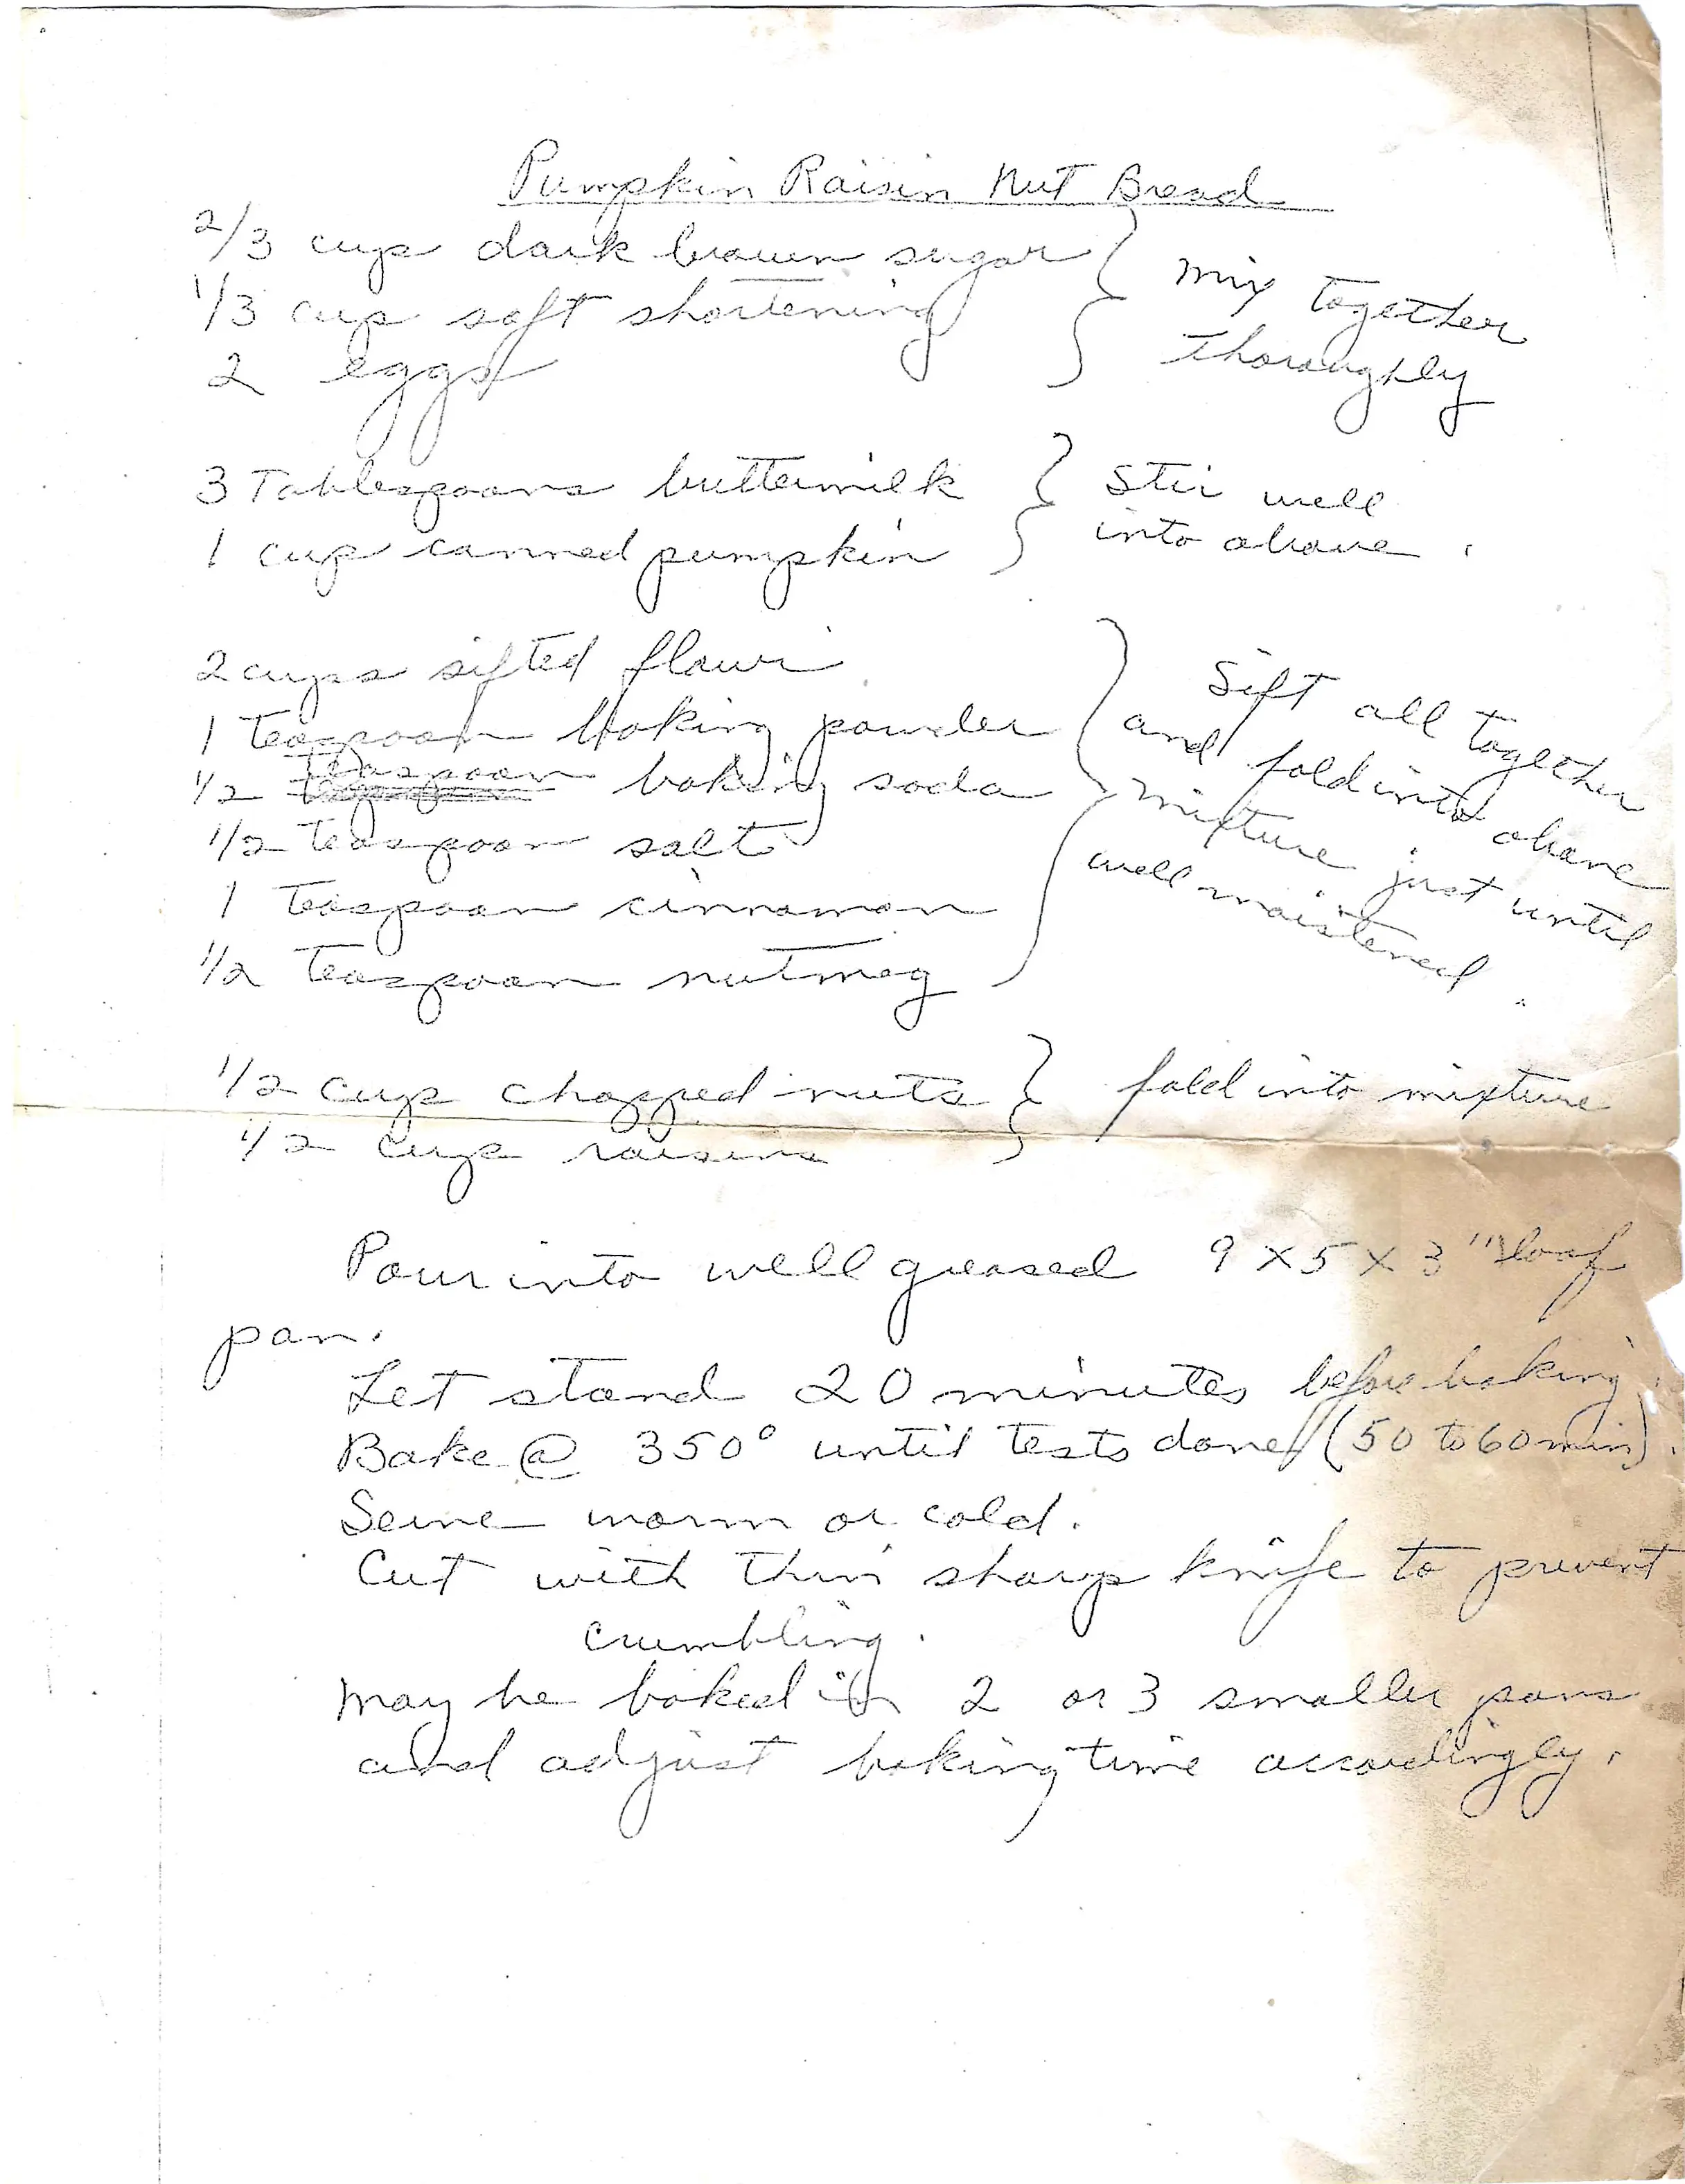 Pumpkin Raisin Nut Bread
2/3 cup dark brown sugar
1/3 cup soft shortening
2 eggs
mix together
thoroughly
3 Tablespoons buttermilk
1 cup canned pumpkin
Stir well
into above.
2 cups sifted flour
1 teaspoon baking powder
1/2 teaspoon baking soda
1/2 teaspoon salt
1 teaspoon cinnamon
1/2 teaspoon nutmeg
Sift all together
and fold into above
mixture just until
well moistened.
1/2 cup chopped nuts
1/2 cup raisins
fold into mixture
Pour into well greased 9 x 5 x 3" loaf
pan.
Let stand 20 minutes before baking.
Bake @ 350° until tests done (50 to 60 min).
Serve warm or cold.
Cut with thin sharp knife to prevent
crumbling.
May be baked in 2 or 3 smaller pans
and adjust baking time accordingly.